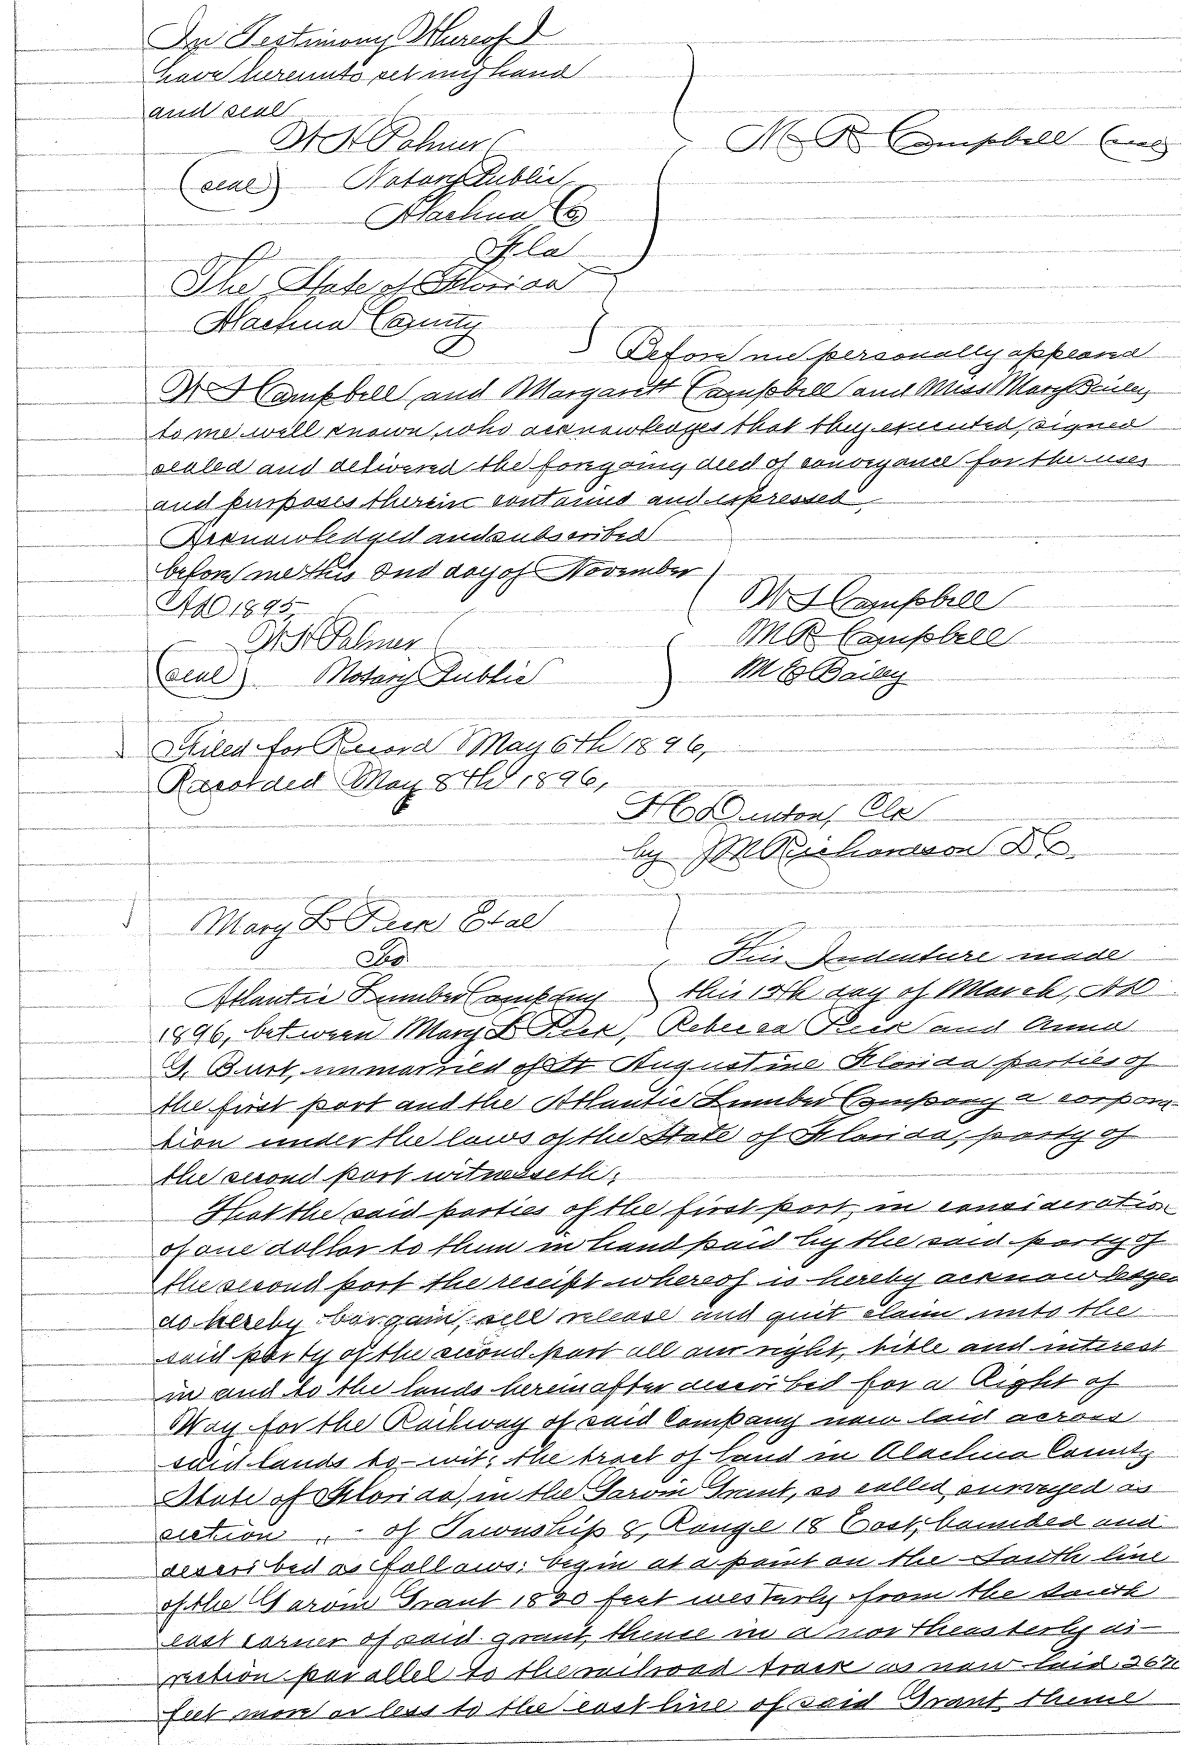 In Testimony Whereof I
have hereunto set my hand
and seal
M R Campbell (seal)
H H Palmer
(seal) Notary Public
Alachua Co
Fla
The State of Florida
Alachua County
Before me personally appeared
W J Campbell and Margarett Campbell and Miss Mary Bailey
to me well known, who acknowledges that they executed, signed
sealed and delivered the foregoing deed of conveyance for the uses
and purposes therein contained and expressed.
Acknowledged and subscribed
before me this 2nd day of November
AD 1895,
W J Campbell
H H Palmer
M R Campbell
(seal) Notary Public
M E Bailey
Filed for Record May 6th 1896,
Recorded May 8th 1896,
H C Denton, Clk
by J M Richardson D C.
Mary L Peck Etal
To
This Indenture made
Atlantic Lumber Company this 13th day of March, AD
1896, between Mary L Peck, Rebecca Peck and Anna
G. Burt, unmarried of St Augustine Florida parties of
the first part and the Atlantic Lumber Company a corpora-
tion under the laws of the State of Florida, party of
the second part witnesseth;
That the said parties of the first part, in consideration
of one dollar to them in hand paid by the said party of
the second part the receipt whereof is hereby acknowledged
do hereby bargain, sell release and quit claim unto the
said party of the second part all our right, title and interest
in and to the lands hereinafter described for a Right of
Way for the Railway of said Company now laid across
said lands to-wit; the tract of land in Alachua County
State of Florida, in the Garvin Grant, so called, surveyed as
section , - of Township 8, Range 18 East, bounded and
described as follows; begin at a point on the South line
of the Garvin Grant 1820 feet westerly from the south
east corner of said grant, thence in a northeasterly di-
rection parallel to the railroad track as now laid,
feet more or less to the east line of said Grant, thence